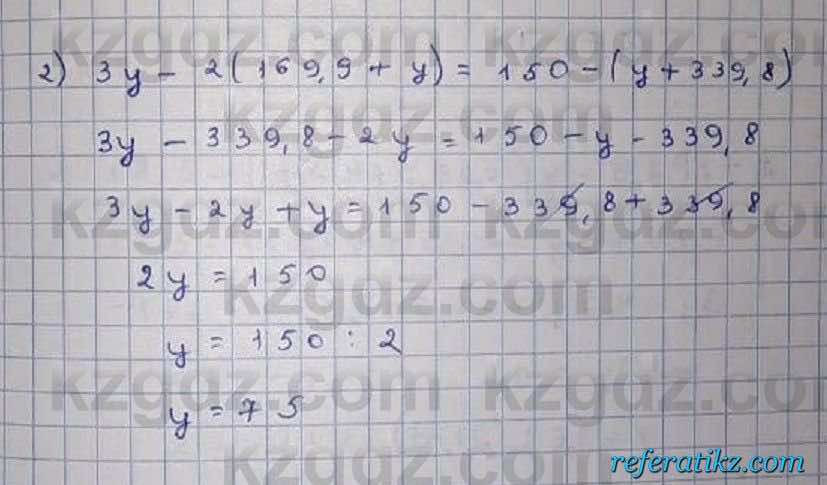 2) 3y - 2(169,9 + y) = 150 - (y + 339,8)
3y - 339,8 - 2y = 150 - y - 339,8
3y - 2y + y = 150 - 339,8 + 339,8
2y = 150
y = 150 : 2
y = 75
kzgdz.com
kzgdz.com
kzgdz.com
kzgdz.com
kzgdz.com
kzgdz.com
referatikz.com